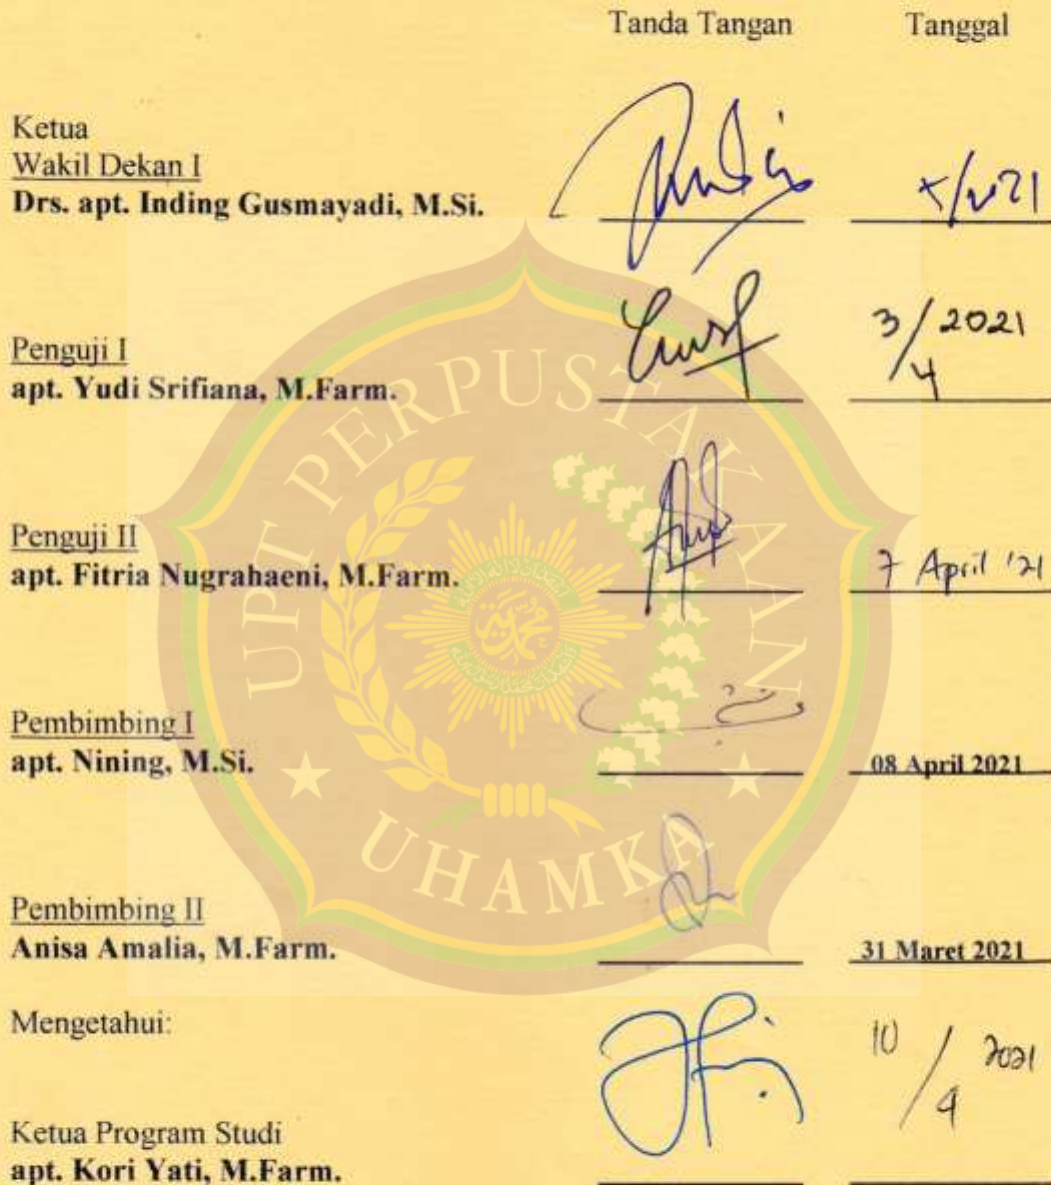 Tanda Tangan Tanggal
Ketua
Wakil Dekan I
Drs. apt. Inding Gusmayadi, M.Si.
Penguji I
apt. Yudi Srifiana, M.Farm.
3/4 2021
Penguji II
apt. Fitria Nugrahaeni, M.Farm.
7 April '21
Pembimbing I
apt. Nining, M.Si.
08 April 2021
Pembimbing II
Anisa Amalia, M.Farm.
31 Maret 2021
Mengetahui:
10/4 2021
Ketua Program Studi
apt. Kori Yati, M.Farm.
UPT PERPUSTAKAAN
UHAMKA